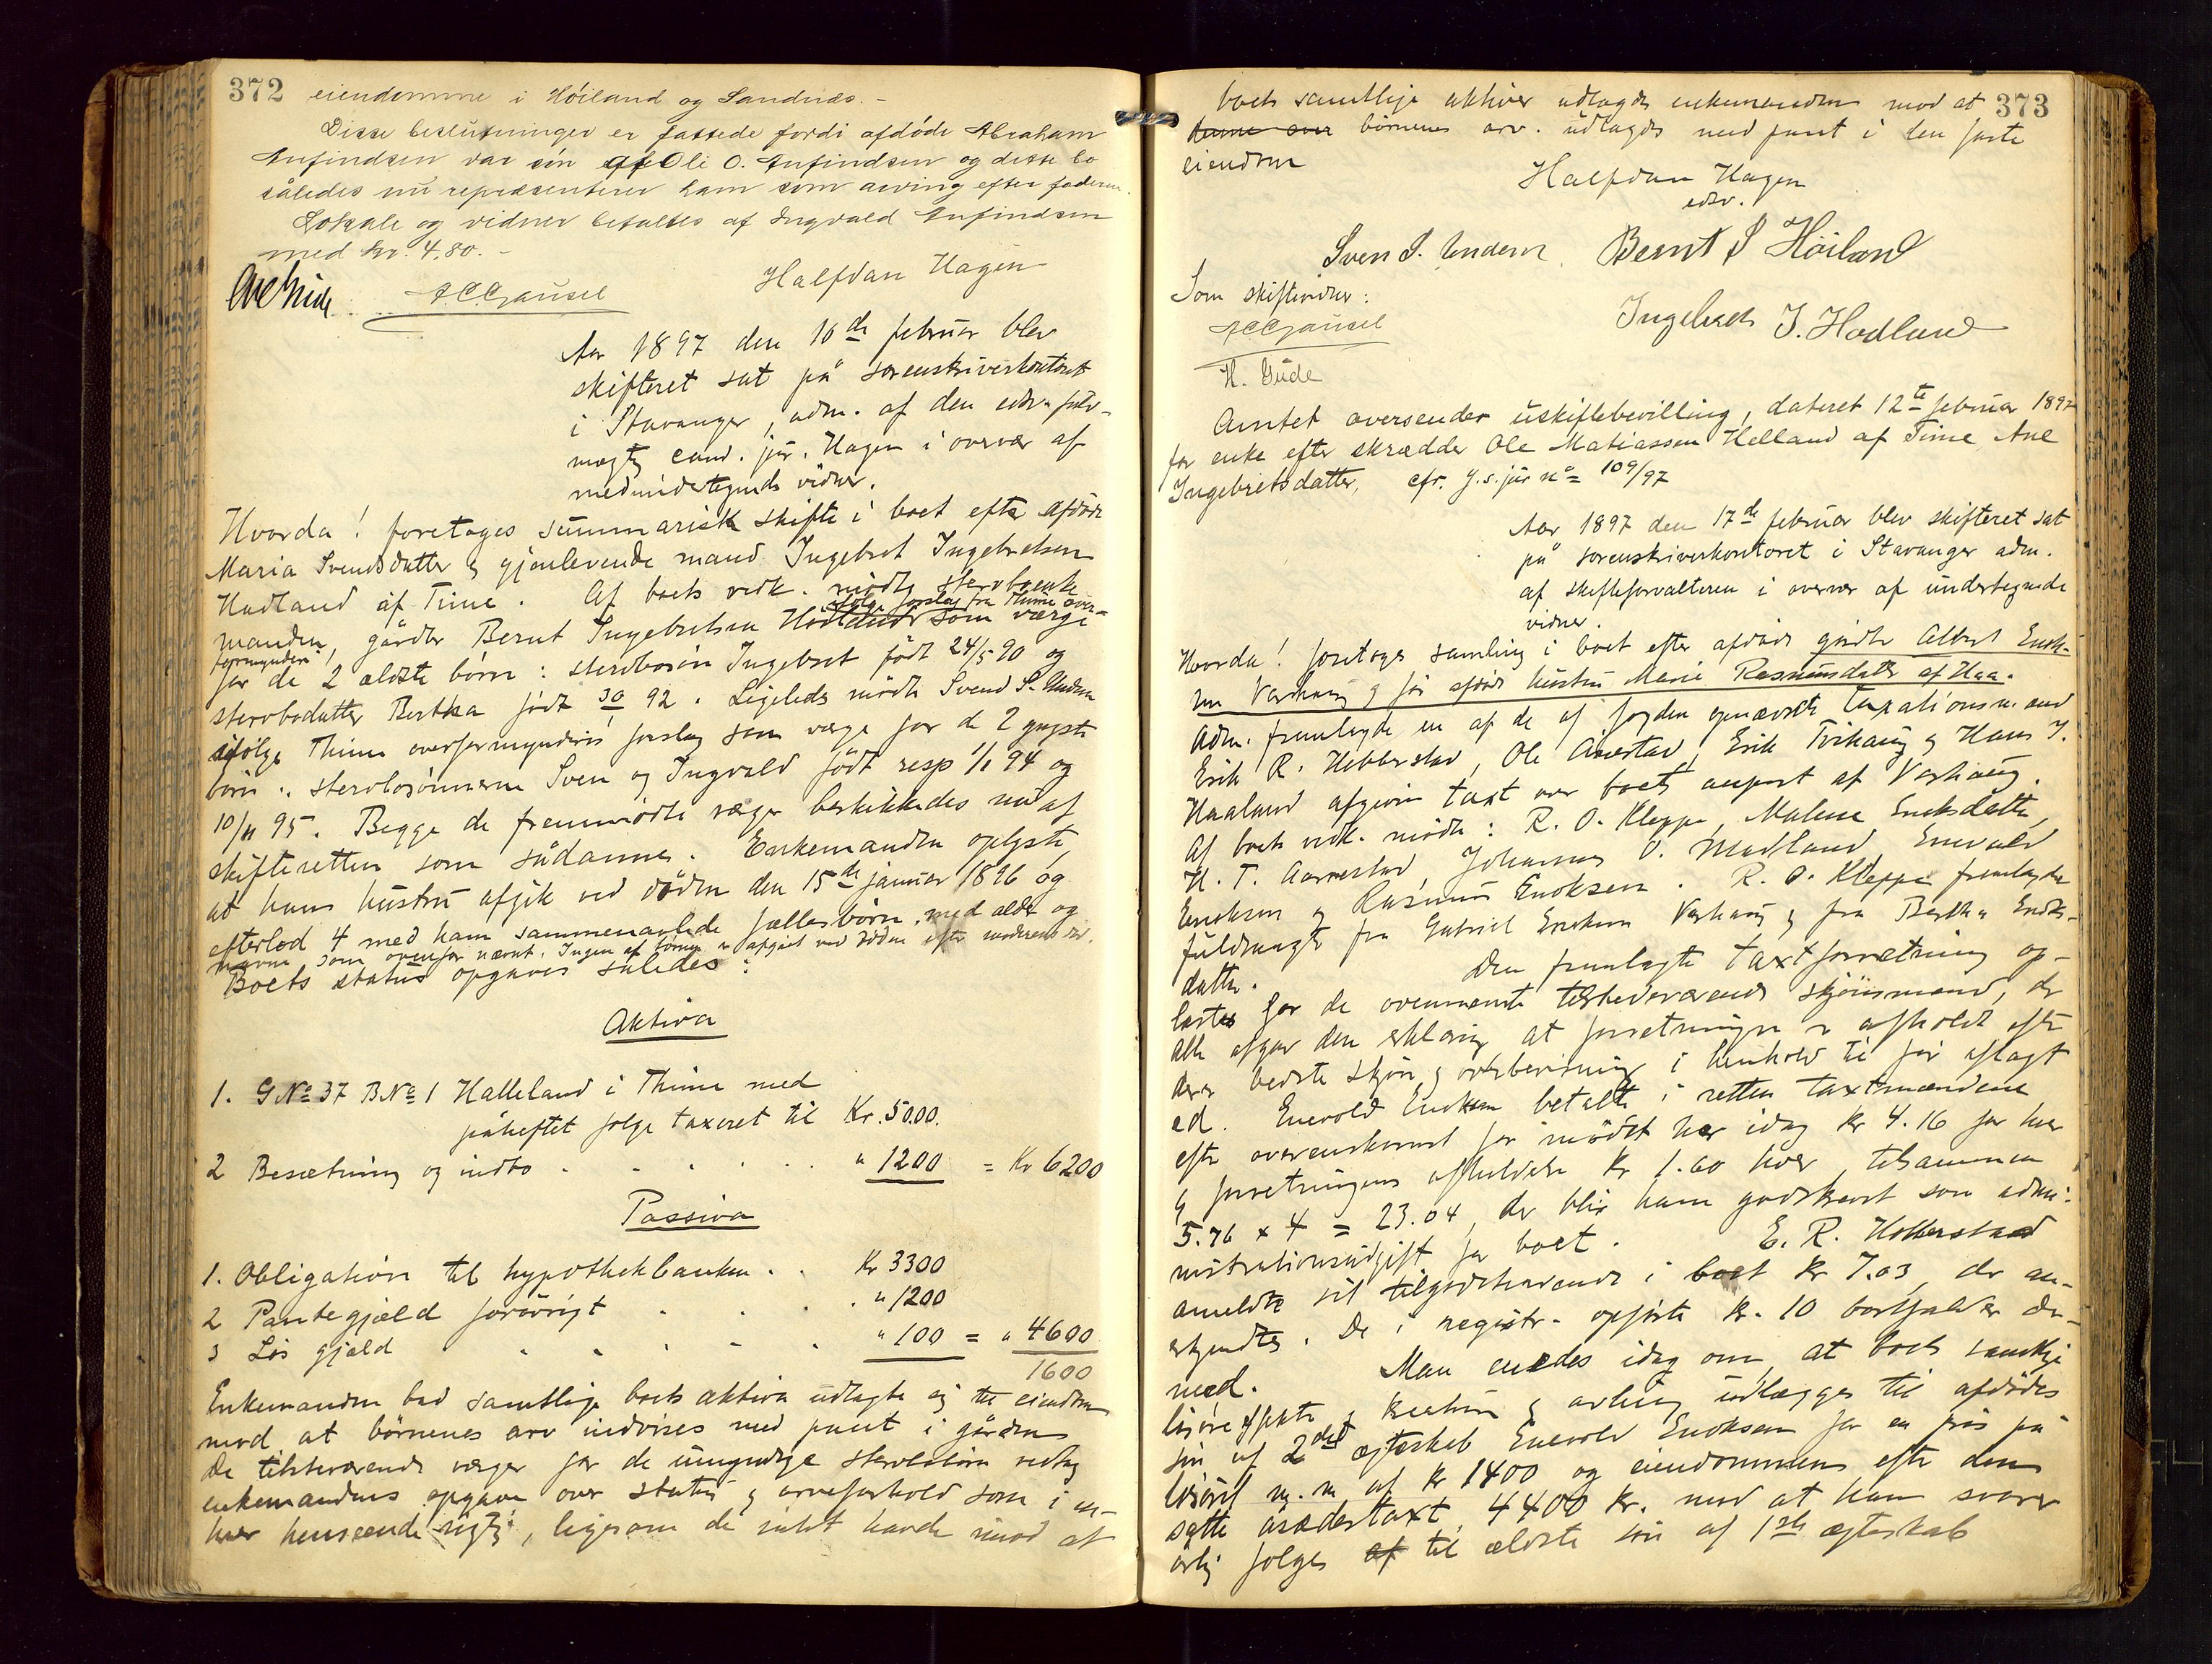 372
eiendomme i Höiland og Sandnæs. -
Disse beslutninger er fattede fordi afdöde Abraham
Anfindsen var sön af Oli O. Anfindsen og dette bo
således nu repræsenterer ham som arving efter faderen.
Lokale og vidner betaltes af Ingvald Anfindsen
med kr. 4.80. -
Halfdan Hagen
A C Gausel
Aar 1897 den 10de februar blev
skifteret sat på sorenskriverkontoret
i Stavanger, adm. af den edsv. fuld-
mægtig cand. jur. Hagen i overvær af
medundertegnede vidner.
Hvorda! foretoges summarisk skifte i boet efter afdöde
Maria Svendsdatter & gjenlevende mand Ingebret Ingebretsen
Hadland af Time. Af boets vedk. mödte stervboenke-
manden, gårdbr Bernt Ingebretsen Hodland ifölge forslag fra Thime over-
formynderi som værge
for de 2 ældste börn: stervbosön Ingebret födt 24/5 90 og
stervbodatter Bertha födt 92. Ligeledes mödte Svend S. Undem
ifölge Thime overformynderis forslag som værge for de 2 yngste
börn: stervbosönnerne Sven og Ingvald födt resp 1/1 94 og
10/11 95. Begge de fremmödte værger beskikkedes nu af
skifteretten som sådanne. Enkemanden oplyste
at hans hustru afgik ved döden den 15de januar 1896 og
efterlod 4 med ham sammenavlede fællesbörn, med alder og
navne som ovenfor nævnt. Ingen af börnene er afgået ved döden efter moderens död.
Boets status opgaves således:
Aktiva
1. G No 37 B No 1 Halleland i Thime med
påheftet folge taxeret til Kr. 5000.
2 Besætning og indbo . . . . . " 1200 = Kr 6200
Passiva
1. Obligation til hypothekbanken . . Kr 3300
2 Pantegjæld forövrigt . . . . " 1200
3 Lös gjæld . . . . . " 100 = " 4600
1600
Enkemanden bad samtlige boets aktiva udlagte sig til eiendom
mod at börnenes arv indvises med pant i gården
De tilstedeværende værger for de umyndige stervbobörn vedtog
enkemandens opgave over status & arveforhold som i en-
hver henseende rigtig, ligesom de intet havde imod at
373
boets samtlige aktiver udlagdes enkemanden mod at
denne over börnenes arv. udlagdes med pant i den faste
eiendom
Halfdan Hagen
edsv.
Sven S. Undem. Bernt I Höiland
Som skiftevidner:
A C Gausel
Ingebret I. Hodland
H. Gude
Amtet oversender uskiftebevilling, dateret 12te februar 1897
for enke efter skrædder Ole Matiassen Helland af Time Ane
Ingebretsdatter, cfr. g. s. jur no = 109/97
Aar 1897 den 17de februar blev skifteret sat
på sorenskriverkontoret i Stavanger adm.
af skifteforvalteren i overvær af undertegnede
vidner.
Hvorda! foretoges samling i boet efter afdöde gårdbr Albert Enok-
sen Varhaug & för afdöde hustru Marie Rasmusdatter af Haa.
Adm. fremlagde en af de af fogden opnævnte taxationsmænd
Erik R. Hebberstad, Ole Aarestad, Erik Tvihaug & Hans J.
Haaland afgiven taxt over boets anpart af Varhaug.
Af boets vedk. mödte: R. O. Kleppe, Malene Enoksdatter,
H. T. Aarrestad, Johannes O. Madland, Enevald
Enoksen & Rasmus Enoksen. R. O. Kleppe fremlagde
fuldmagt fra Gabriel Enoksen Varhaug & fra Bertha Enoks-
datter. Den fremlagte taxtforretning op-
læstes for de ovennævnte tilstedeværende skjönsmænd, der
alle afgav den erklæring at forretningen er afholdt efter
deres bedste skjön & overbevisning i henhold til för aflagt
ed. Enevold Enoksen betalte i retten taxtmændene
efter overenskomst for mödet her idag Kr 4.16 for hver
& forretningens afholdelse Kr 1.60 hver, tilsammen
5.76 x 4 = 23.04, der blir ham godskrevet som admi-
nistrationsudgift for boet. E. R. Hobberstad
anmeldte sit tilgodehavende i boet Kr 7.03, der an-
erkjendtes. De i registr. opförte Kr. 10 bortfalder der-
med. Man enedes idag om, at boets samtlige
lösöreeffekter, kreaturer & avling udlægges til afdödes
sön af 2det ægteskab Enevold Enoksen for en pris på
lösöret m. m. af Kr 1400 og eiendommen efter den
satte arædestaxt 4400 Kr. mod at han svarer
årlig folges af til ældste sön af 1ste ægteskab